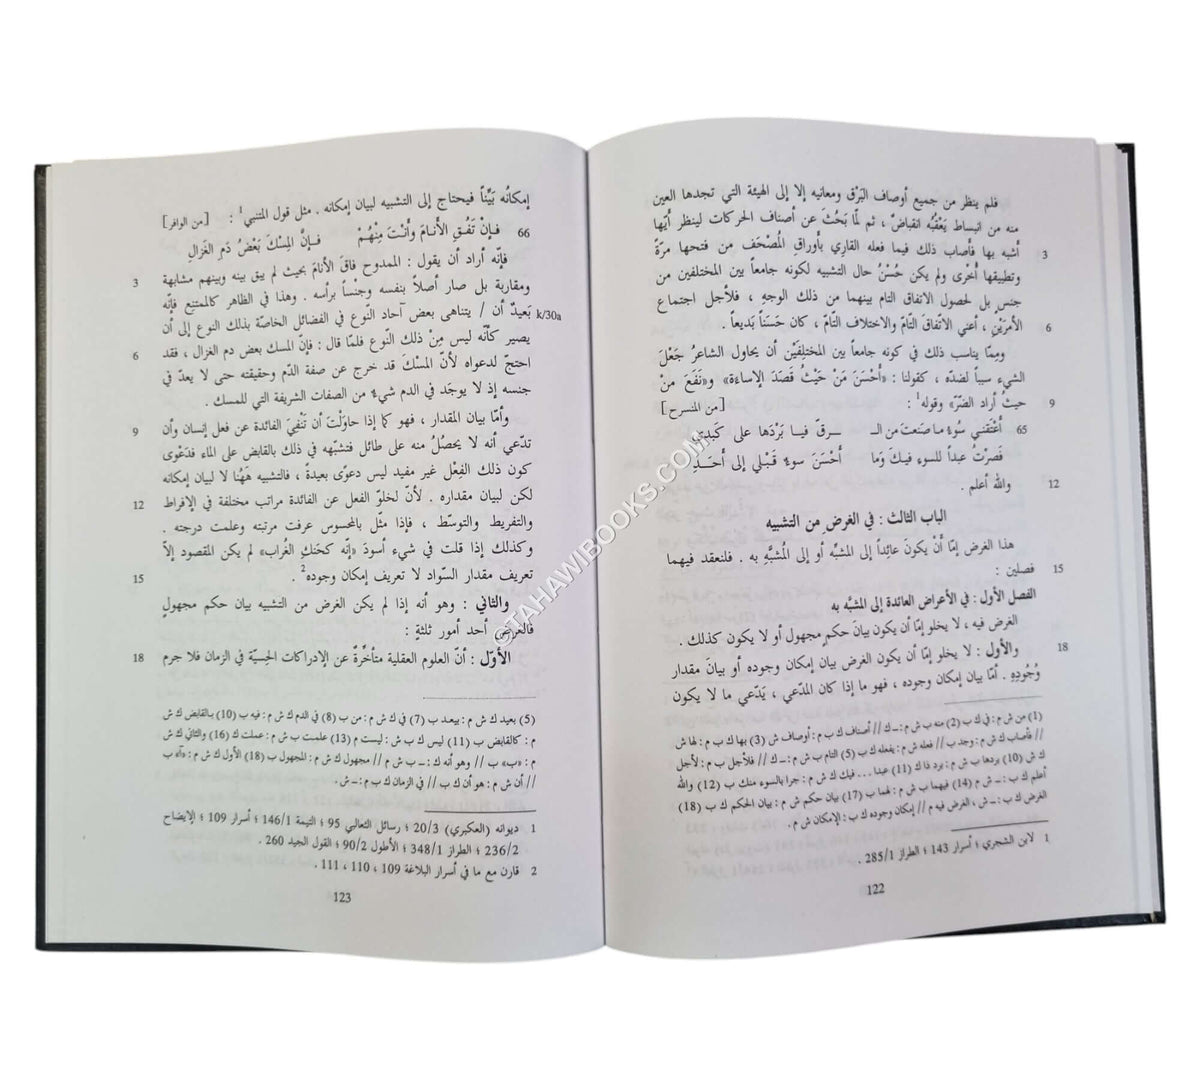 فلم ينظر من جميع أوصاف البَرْق ومعانيه إلا إلى الهيئة التي تجدها العين
منه من انبساط يَعْقُبُه انقباضٌ ، ثم لمّا بَحَثَ عن أصناف الحركات لينظر أيّها
3 أشبه بها فأصاب ذلك فيما فعله القاري بأوراقِ المُصْحَف من فتحها مرّةً
وتطبيقها أُخْرى ولم يكن حُسْنُ حال التشبيه لكونه جامعاً بين المختلفين من
جنس بل لحصول الاتفاق التام بينهما من ذلك الوجهِ ، فلأجل اجتماع
6 الأمرَيْنِ ، أعني الاتّفاق التامّ والاختلاف التّامّ ، كان حَسَناً بَديعاً .
وممّا يناسب ذلك في كونه جامعاً بين المختلِفَيْن أن يحاول الشاعرُ جَعْلَ
الشيء سبباً لضدّه ، كقولنا : «أحْسَنَ مَنْ حَيْثُ قَصَدَ الإساءَة» و«نَفَعَ مِنْ
9 حيثُ أراد الضّرّ» وقوله1 : [من المنسرح]
65 أعْتَقني سُوءُ ما صَنعتَ من الـ ـرقّ فيا بَرْدَها على كَبدي
فَصِرْتُ عبداً للسوءِ فيكَ وَما أحْسَنَ سوءٌ قَبْلي إلى أحَدِ
12 والله أعلم .
الباب الثالث : في الغرضِ مِن التشبيه
هذا الغرض إمّا أنْ يكونَ عائِداً إلى المشبَّه أو إلى المُشبَّهِ به . فلنعقد فيهما
15 فصلين :
الفصل الأول : في الأعراض العائدة إلى المشبَّه به
الغرض فيه ، لا يخلو إمّا أن يكون بيانَ حكمٍ مجهولٍ أو لا يكون كذلك .
18 والأول : لا يخلو إمّا أن يكون الغرض بيان إمكان وجوده أو بيانَ مقدار
وُجُودِهِ . أمّا بيان إمكان وجوده ، فهو ما إذا كان المدّعي ، يَدّعي ما لا يكون
(1) من ش م : في ك ب (2) منه ب ش م : ــ ك // أصناف ك ب م : أوصاف ش (3) بها ك ب م : لها ش
// فأصاب ك ش م : وجد ب // فعله ش م : يفعله ك ب (5) التام ب ش م : ــ ك // فلأجل ب م : لأجل
ك ش (10) بردها ب ش م : برد ذا ك (11) عبدا ... فيك ك ش م : جرا بالسوء منك ب (12) والله
أعلم ك ب : ــ ش م (14) فيهما ب ش م : لهما ب (17) بيان حكم ش م : بيان الحكم ك ب (18)
الغرض ك ب : ــ ش ، الغرض فيه م // إمكان وجوده ك ب : الإمكان ش م .
1 لابن الشجري ؛ أسرار 143 ؛ الطراز 285/1 .
122
إمكانُه بَيِّناً فيحتاج إلى التشبيه لبيان إمكانه . مثل قول المتنبي1 : [من الوافر]
66 فـإنْ تَفُـقِ الأنـامَ وأنْـتَ مِنْهُـمْ فـإنَّ المِسْكَ بَعْضُ دَمِ الغَزالِ
فإنّه أراد أن يقول : الممدوح فاقَ الأنامَ بحيث لم يبق بينه وبينهم مشابهة 3
ومقاربة بل صار أصلاً بنفسه وجنْساً برأسه . وهذا في الظاهر كالممتنِع فإنّه
k/30a بَعيدٌ أن / يتناهى بعض آحاد النّوع في الفضائل الخاصّة بذلك النوع إلى أن
يصير كأنّه ليس مِنْ ذلك النّوع فلمّا قال : فإنّ المسك بعض دم الغزال ، فقد 6
احتجّ لدعواه لأنّ المسكَ قد خرج عن صفة الدّم وحقيقته حتى لا يعدّ في
جنسه إذ لا يوجَد في الدم شيءٌ من الصفات الشريفة التي للمسك .
وأمّا بيان المقدار ، فهو كما إذا حاوَلْتَ أن تَنْفِيَ الفائدة عن فعل إنسان وأن 9
تدّعي أنه لا يحصُلُ منه على طائل فتشبّهه في ذلك بالقابض على الماء فدَعْوى
كون ذلك الفِعْل غير مفيد ليس دعوًى بعيدةً ، فالتشبيه هَهُنا لا لبيان إمكانه
لكن لبيان مقداره . لأنّ لخلوّ الفعل عن الفائدة مراتب مختلفة في الإفراط 12
والتفريط والتوسّط ، فإذا مثّل بالمحسوس عرفت مرتبته وعلمت درجته .
وكذلك إذا قلت في شيء أسودَ «إنّه كحَنَكِ الغُراب» لم يكن المقصود إلاّ
تعريف مقدار السّواد لا تعريف إمكان وجوده2 . 15
والثاني : وهو أنه إذا لم يكن الغرض من التشبيه بيان حكم مجهولٍ
فالغرض أحد أمور ثلثةٍ :
الأوّل : أنّ العلوم العقلية متأخّرةٌ عن الإدراكات الحِسيّة في الزمان فلا جرم 18
(5) بعيد ك ش م : يبعد ب (7) في ك ش م : من ب (8) في الدم ك ش م : فيه ب (10) بالقابض ك ش
م : كالقابض ب (11) ليس ك ب ش : ليست م (13) علمت ب ش م : عملت ك (16) والثاني ك ش
م : «ب» ب // وهو أنه ك : ــ ب ش م // مجهول ك ش م : المجهول ب (18) الأول ك ش م : «آ» ب
// أن ش م : هو أن ك ب // في الزمان ك ب م : ــ ش .
1 ديوانه (العكبري) 20/3 ؛ رسائل الثعالبي 95 ؛ التيمة 146/1 ؛ أسرار 109 ؛ الإيضاح
236/2 ؛ الطراز 348/1 ؛ الأطول 90/2 ؛ القول الجيد 260 .
2 قارن مع ما في أسرار البلاغة 109 ، 110 ، 111 .
123
©TAHAWIBOOKS.COM